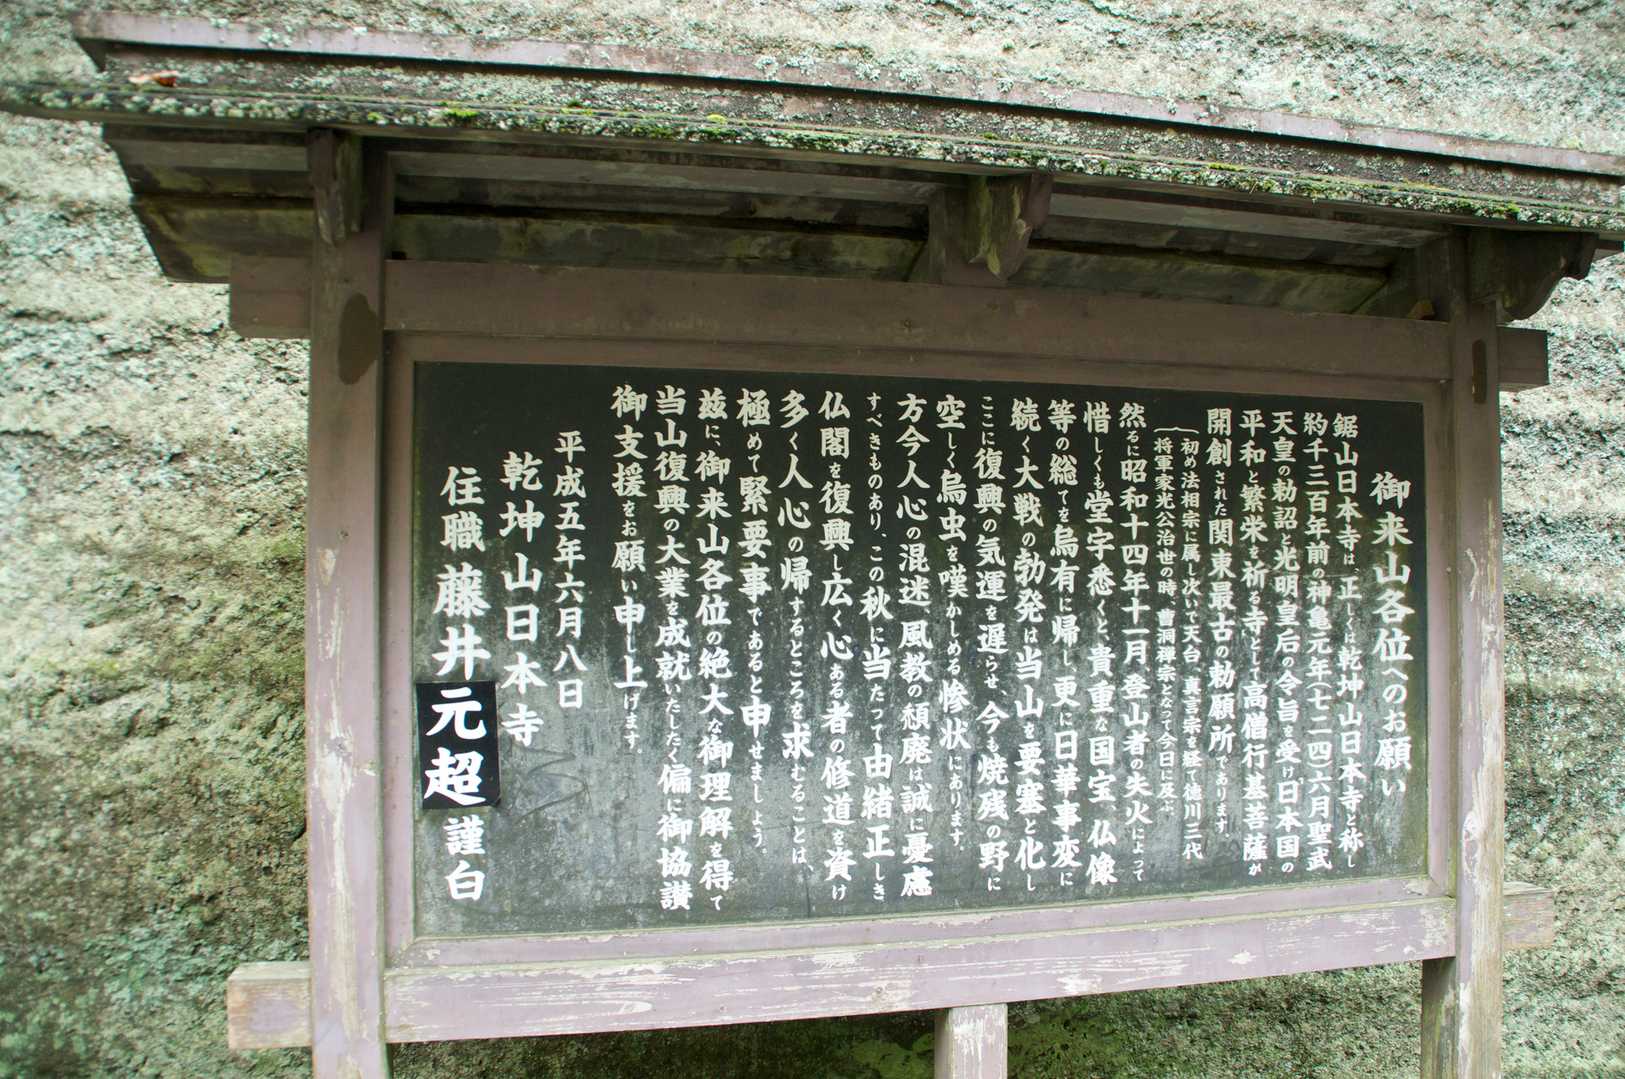 御来山各位へのお願い
鋸山日本寺は正しくは乾坤山日本寺と称し
約千三百年前の神亀元年(七二四)六月聖武
天皇の勅詔と光明皇后の令旨を受け日本国の
平和と繁栄を祈る寺として高僧行基菩薩が
開創された関東最古の勅願所であります。
(初め法相宗に属し次いで天台、真言宗を経て徳川三代
将軍家光公治世の時、曹洞禅宗となって今日に及ぶ。
然るに昭和十四年十一月登山者の失火によって
惜しくも堂宇悉くと、貴重な国宝、仏像
等の総てを烏有に帰し更に日華事変に
続く大戦の勃発は当山を要塞と化し
ここに復興の気運を遅らせ、今も焼残の野に
空しく烏虫を嘆かしめる惨状にあります。
方今人心の混迷、風教の頽廃は誠に憂慮
すべきものあり、この秋に当たって由緒正しき
仏閣を復興し広く心ある者の修道を資け
多く人心の帰するところを求むることは、
極めて緊要事であると申せましょう。
茲に、御来山各位の絶大な御理解を得て
当山復興の大業を成就いたしたく偏に御協讃
御支援をお願い申し上げます。
平成五年六月八日
乾坤山日本寺
住職 藤井元超 謹白